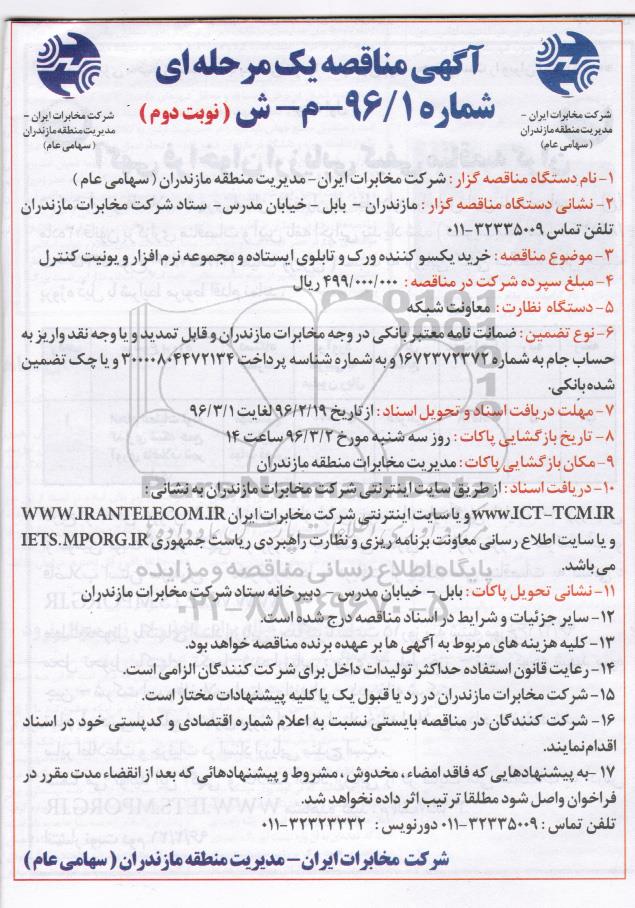 آگهی مناقصه یک مرحله ای
شماره ۹۶/۱-م-ش (نوبت دوم)
شرکت مخابرات ایران -
مدیریت منطقه مازندران
(سهامی عام)
شرکت مخابرات ایران -
مدیریت منطقه مازندران
(سهامی عام)
۱- نام دستگاه مناقصه گزار : شرکت مخابرات ایران - مدیریت منطقه مازندران ( سهامی عام )
۲- نشانی دستگاه مناقصه گزار : مازندران - بابل - خیابان مدرس- ستاد شرکت مخابرات مازندران
تلفن تماس ۳۲۳۳۵۰۰۹-۰۱۱
۳- موضوع مناقصه : خرید یکسو کننده ورک و تابلوی ایستاده و مجموعه نرم افزار و یونیت کنترل
۴- مبلغ سپرده شرکت در مناقصه : ۴۹۹/۰۰۰/۰۰۰ ریال
۵- دستگاه نظارت : معاونت شبکه
۶- نوع تضمین : ضمانت نامه معتبر بانکی در وجه مخابرات مازندران و قابل تمدید و یا وجه نقد واریز به
حساب جام به شماره ۱۶۷۲۳۷۲۳۷۲ و به شماره شناسه پرداخت ۳۰۰۰۰۸۰۴۴۷۲۱۳۴ و یا چک تضمین
شده بانکی.
۷- مهلت دریافت اسناد و تحویل اسناد : از تاریخ ۹۶/۲/۱۹ لغایت ۹۶/۳/۱
۸- تاریخ بازگشایی پاکات : روز سه شنبه مورخ ۹۶/۳/۲ ساعت ۱۴
۹- مکان بازگشایی پاکات : مدیریت مخابرات منطقه مازندران
۱۰- دریافت اسناد : از طریق سایت اینترنتی شرکت مخابرات مازندران به نشانی :
www.ICT-TCM.IR و یا سایت اینترنتی شرکت مخابرات ایران WWW.IRANTELECOM.IR
و یا سایت اطلاع رسانی معاونت برنامه ریزی و نظارت راهبردی ریاست جمهوری IETS.MPORG.IR
می باشد.
۱۱- نشانی تحویل پاکات : بابل - خیابان مدرس - دبیرخانه ستاد شرکت مخابرات مازندران
۱۲- سایر جزئیات و شرایط در اسناد مناقصه درج شده است.
۱۳- کلیه هزینه های مربوط به آگهی ها بر عهده برنده مناقصه خواهد بود.
۱۴- رعایت قانون استفاده حداکثر تولیدات داخل برای شرکت کنندگان الزامی است.
۱۵- شرکت مخابرات مازندران در رد یا قبول یک یا کلیه پیشنهادات مختار است.
۱۶- شرکت کنندگان در مناقصه بایستی نسبت به اعلام شماره اقتصادی و کدپستی خود در اسناد
اقدام نمایند.
۱۷- به پیشنهادهایی که فاقد امضاء ، مخدوش ، مشروط و پیشنهادهائی که بعد از انقضاء مدت مقرر در
فراخوان واصل شود مطلقا ترتیب اثر داده نخواهد شد.
تلفن تماس : ۳۲۳۳۵۰۰۹-۰۱۱ دورنویس : ۳۲۳۲۳۳۳۲-۰۱۱
شرکت مخابرات ایران - مدیریت منطقه مازندران ( سهامی عام )
پایگاه اطلاع رسانی مناقصه و مزایده